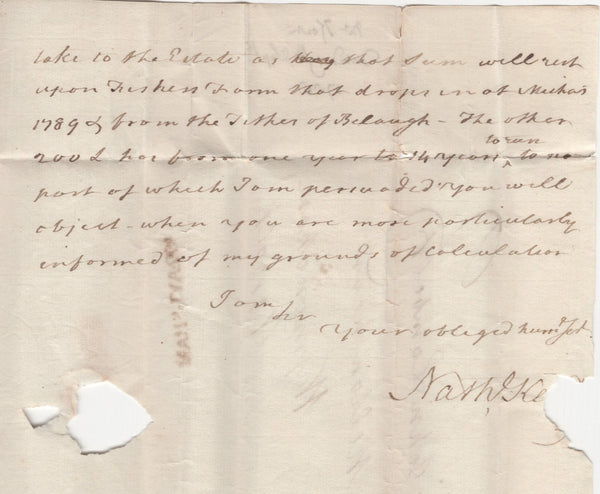 take to the Estate as that Sum will rest
upon Fishers Farm that drops in at Michas
1789 & from the Tithes of Belaugh - The other
to run
200 L has from one year to 14 years ^ to no
part of which I am persuaded you will
object - when you are more particularly
informed of my grounds of Calculation
I am
Sr
Your obliged hum Sert
Nathl Ke